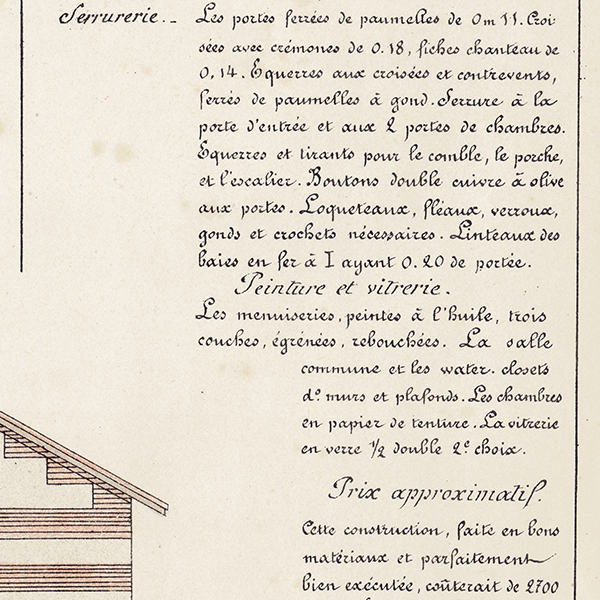 Serrurerie._ Les portes ferrées de paumelles de 0m11. Croi-
sées avec crémones de 0.18, fiches chanteau de
0,14. Equerres aux croisées et contrevents,
ferrés de paumelles à gond. Serrure à la
porte d'entrée et aux 2 portes de chambres.
Equerres et tirants pour le comble, le porche,
et l'escalier. Boutons double cuivre à olive
aux portes. Loqueteaux, fléaux, verroux,
gonds et crochets nécessaires. Linteaux des
baies en fer à I ayant 0.20 de portée.
Peinture et vitrerie.
Les menuiseries, peintes à l'huile, trois
couches, égrénées, rebouchées. La salle
commune et les water. closets
d° murs et plafonds. Les chambres
en papier de tenture. La vitrerie
en verre ½ double 2e choix.
Prix approximatif.
Cette construction, faite en bons
matériaux et parfaitement
bien exécutée, coûterait de 2700